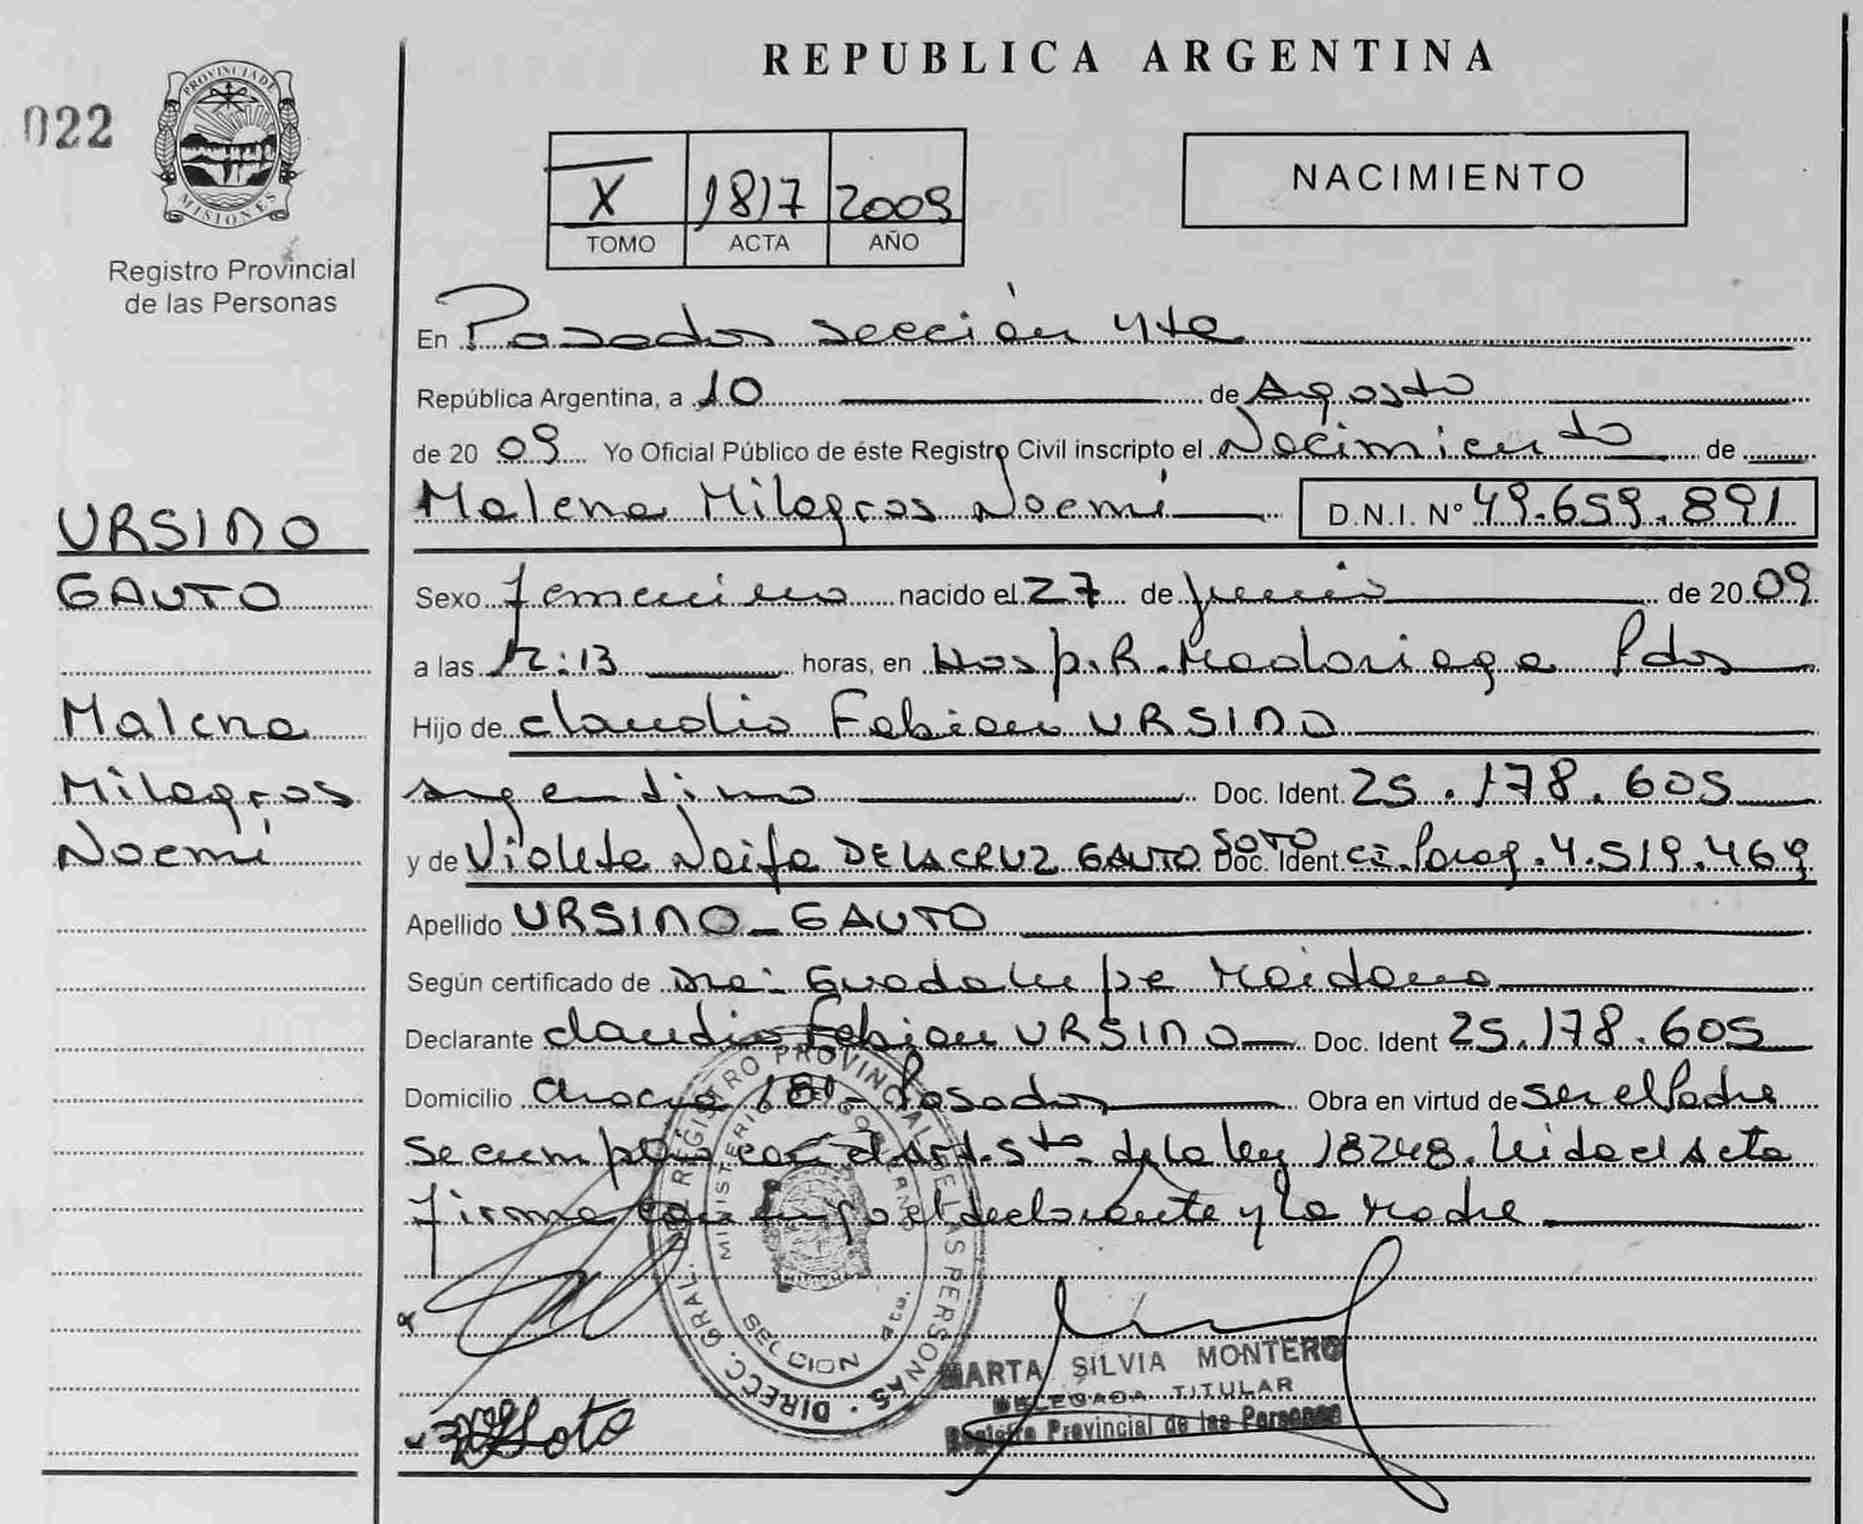 REPUBLICA ARGENTINA
022
PROVINCIA DE MISIONES
Registro Provincial
de las Personas
X 1817 2009
TOMO ACTA AÑO
NACIMIENTO
En Posadas sección 4ta
República Argentina, a 10 de Agosto
de 20 09 Yo Oficial Público de éste Registro Civil inscripto el Nacimiento de
Malena Milagros Noemí D.N.I. N° 49.659.891
URSINO
GAUTO
Malena
Milagros
Noemí
Sexo femenino nacido el 27 de junio de 20 09
a las 12:13 horas, en Hosp. R. Madariaga Pdas
Hijo de Claudio Fabian URSINO
argentino Doc. Ident. 25.178.605
y de Violeta Naifa DE LA CRUZ GAUTO SOTO Doc. Ident. CI. Parag. 4.519.469
Apellido URSINO - GAUTO
Según certificado de Dra: Guadalupe Maidana
Declarante Claudio Fabian URSINO Doc. Ident 25.178.605
Domicilio 181 - Posadas Obra en virtud de ser el Padre
se cumplió con el Art. 5to de la ley 18248. Leida el Acta
firma conmigo el declarante y la madre
DIRECC. GRAL. DEL REGISTRO PROVINCIAL DE LAS PERSONAS
MINISTERIO DE GOBIERNO
SECCION 4ta.
Soto
MARTA SILVIA MONTERO
DELEGADA TITULAR
Registro Provincial de las Personas